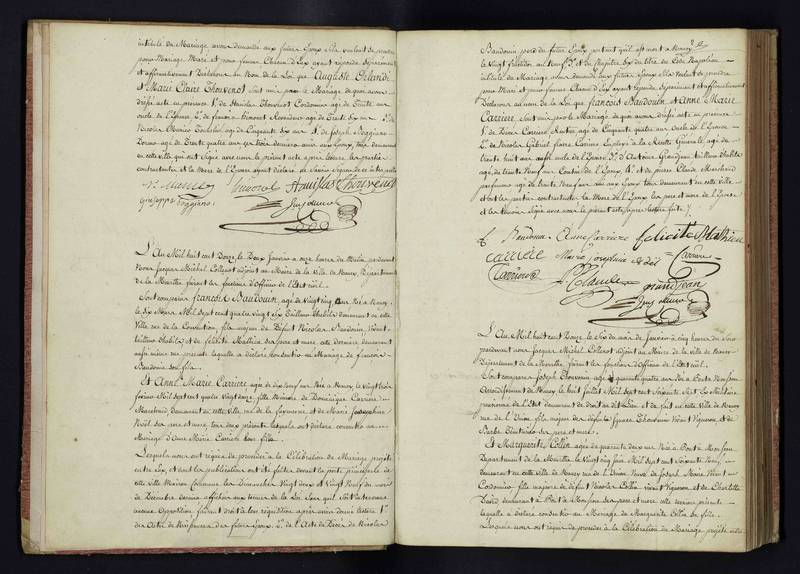 intitulé du Mariage avons demandé aux futurs Epoux s'ils veulent se prendre
pour Mari et pour femme Chacun d'Eux ayant répondu séparément
et affirmativement Declarons au Nom de la Loi que Auguste Orlandi
et Marie Claire Thouvenot sont unis par le Mariage de quoi avons
dressé acte en présence de Stanislas Thouvenot Cordonnier agé de trente
oncle de l'Epouse, de Vimonet agé de trente six ans
Nicolas agé de Cinquante six ans de Joseph Boggiano
agé de trente quatre ans
en cette ville qui ont signé avec nous le présent acte après lecture les parties
contractantes et la Mere de l'Epouse ayant déclaré
Vimonet Stanislas Thouvenot
Giuseppe Boggiano
L'An Mil huit cent Douze, le Deux Janvier à onze heures du Matin, pardevant
Nous Jacques Michel Collenot adjoint au Maire de la Ville de Nancy, Département
de la Meurthe faisant les fonctions d'Officier de l'Etat civil.
Sont comparus françois Baudouin, agé de Vingt cinq ans Né à Nancy
le Six Mars Mil sept cent quatre vingt six Tailleur d'habits demeurant en cette
Ville rue de la Constitution, fils majeur de Défunt Nicolas Baudouin, vivant
tailleur d'habits et de félicité Mathieu ses pere et mere, cette derniere demeurant
même rue présente laquelle a déclaré consentir au Mariage de françois
Baudouin son fils.
Et Anne Marie Carriere agée de dix Neuf ans Née à Nancy, le Vingt trois
Mil sept cent quatre Vingt onze, fille Mineure de Dominique Carriere
Marchand demeurant en cette Ville rue de la et de Marie Josephine
Noël ses pere et mere, tous deux présents lesquels ont déclaré consentir au
Mariage d'Anne Marie Carriere leur fille.
Lesquels nous ont requis de procéder à la Célébration du Mariage projeté
entre Eux, et dont les publications ont été faites devant la porte principale de
cette Ville Maison Commune les Dimanches Vingt deux et Vingt Neuf du mois
de Décembre dernier
aucune Opposition faisant droit à leur réquisition après avoir donné lecture 1.º
des Actes de Naissances des futurs Epoux 2.º de l'Acte de Décès de Nicolas
Baudouin pere du futur Epoux portant qu'il est mort à Nancy
le Vingt fructidor an Neuf 3.º et du Chapitre Six du titre du Code Napoléon
intitulé du Mariage avons demandé aux futurs Epoux s'ils veulent se prendre
pour Mari et pour femme Chacun d'Eux ayant répondu séparément et affirmativement
Declarons au nom de la Loi que françois Baudouin et Anne Marie
Carriere sont unis par le Mariage de quoi avons dressé acte en présence
1.º de Carriere agé de Cinquante quatre ans oncle de l'Epouse
2.º de Nicolas Gabriel Carriere Employé à la Recette Générale agé de
trente huit ans aussi oncle de l'Epouse 3.º d'Antoine Grandjean tailleur d'habits
agé de trente Neuf ans Cousin de l'Epoux 4.º et de pierre Claude Marchand
parfumeur agé de trente Neuf ans tous demeurant en cette Ville
et ont les parties contractantes la Mere de l'Epoux les pere et mere de l'Epouse
et les témoins signé avec nous le présent acte après lecture faite
Baudouin Anne Carriere felicité Mathieu
Carriere Marie Josephine Noël Carriere
Carriere P. Claude grandjean
L'An Mil huit cent Douze, le Six du mois de Janvier à cinq heures du soir
pardevant nous Jacques Michel Collenot adjoint au Maire de la ville de Nancy
Département de la Meurthe faisant les fonctions d'Officier de l'Etat civil.
Sont comparus Joseph Thouvenin agé de quarante quatre ans Né à Pont à Mousson
Arrondissement de Nancy le huit Juillet Mil sept cent Soixante Sept Ex Militaire
pensionné de l'Etat demeurant de droit et de fait en cette Ville de Nancy
rue de l'Union, fils majeur des défunts Thouvenin Vivant Vigneron et de
Barbe ses pere et mere.
Et Marguerite Collin agée de quarante deux ans Née à Pont à Mousson
Département de la Meurthe le Vingt cinq Juin Mil sept cent Soixante Neuf
demeurant en cette ville de Nancy rue de l'Union Veuve de Joseph Marie Vivant
Cordonnier fille majeure de défunt Nicolas Collin vivant Vigneron et de Charlotte
David demeurant à Pont à Mousson ses pere et mere cette derniere présente
laquelle a déclaré consentir au Mariage de Marguerite Collin sa fille.
Lesquels nous ont requis de procéder à la Célébration du Mariage projeté entre